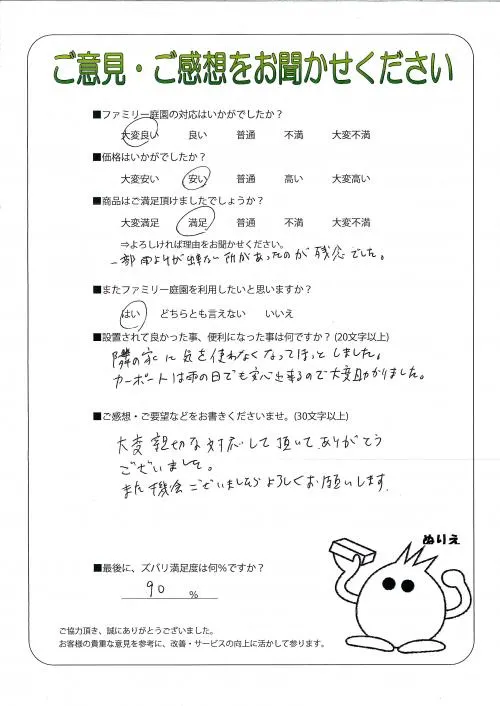 ご意見・ご感想をお聞かせください
■ファミリー庭園の対応はいかがでしたか？
大変良い 良い 普通 不満 大変不満
■価格はいかがでしたか？
大変安い 安い 普通 高い 大変高い
■商品はご満足頂けましたでしょうか？
大変満足 満足 普通 不満 大変不満
⇒よろしければ理由をお聞かせください。
一部 が出ない所があったのが残念でした。
■またファミリー庭園を利用したいと思いますか？
はい どちらとも言えない いいえ
■設置されて良かった事、便利になった事は何ですか？(20文字以上)
隣の家に気を使わなくなってほっとしました。
カーポートは雨の日でも安心出来るので大変助かりました。
■ご感想・ご要望などをお書きくださいませ。(30文字以上)
大変親切な対応して頂いて、ありがとう
ございました。
また機会ございましたらよろしくお願いします。
ぬりえ
■最後に、ズバリ満足度は何％ですか？
90 ％
ご協力頂き、誠にありがとうございました。
お客様の貴重な意見を参考に、改善・サービスの向上に活かして参ります。